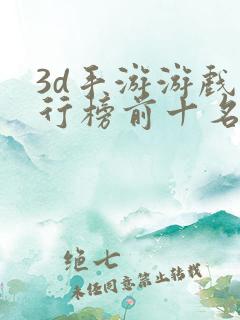 3d手游游戏
行榜前十名
绝七
未经同意禁止转载